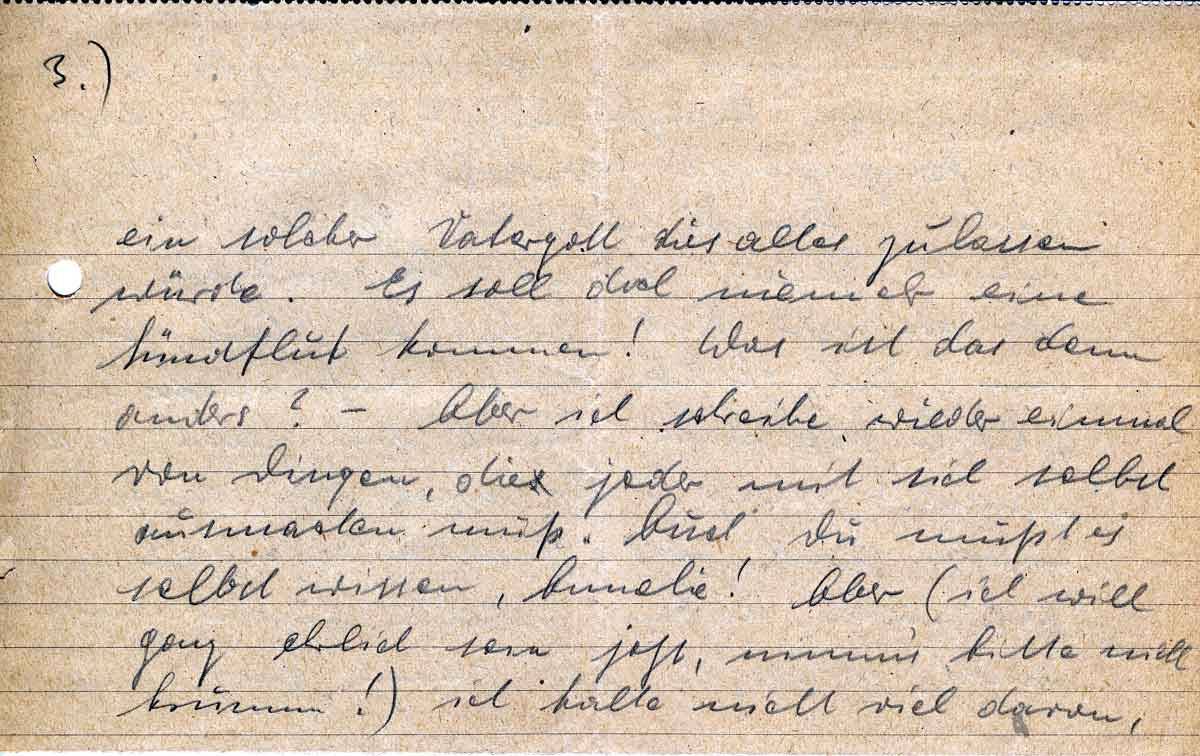 3.)
ein solcher Vatergott dies alles zulassen
würde. Es soll doch niemals eine
Sündflut kommen! Was ist das denn
anders? – Aber ich schreibe wieder einmal
von Dingen, die jeder mit sich selbst
ausmachen muß. Auch Du mußt es
selbst wissen, Annelie! Aber (ich will
ganz ehrlich sein jetzt, nimm's bitte nicht
krumm!) ich halte nicht viel davon,